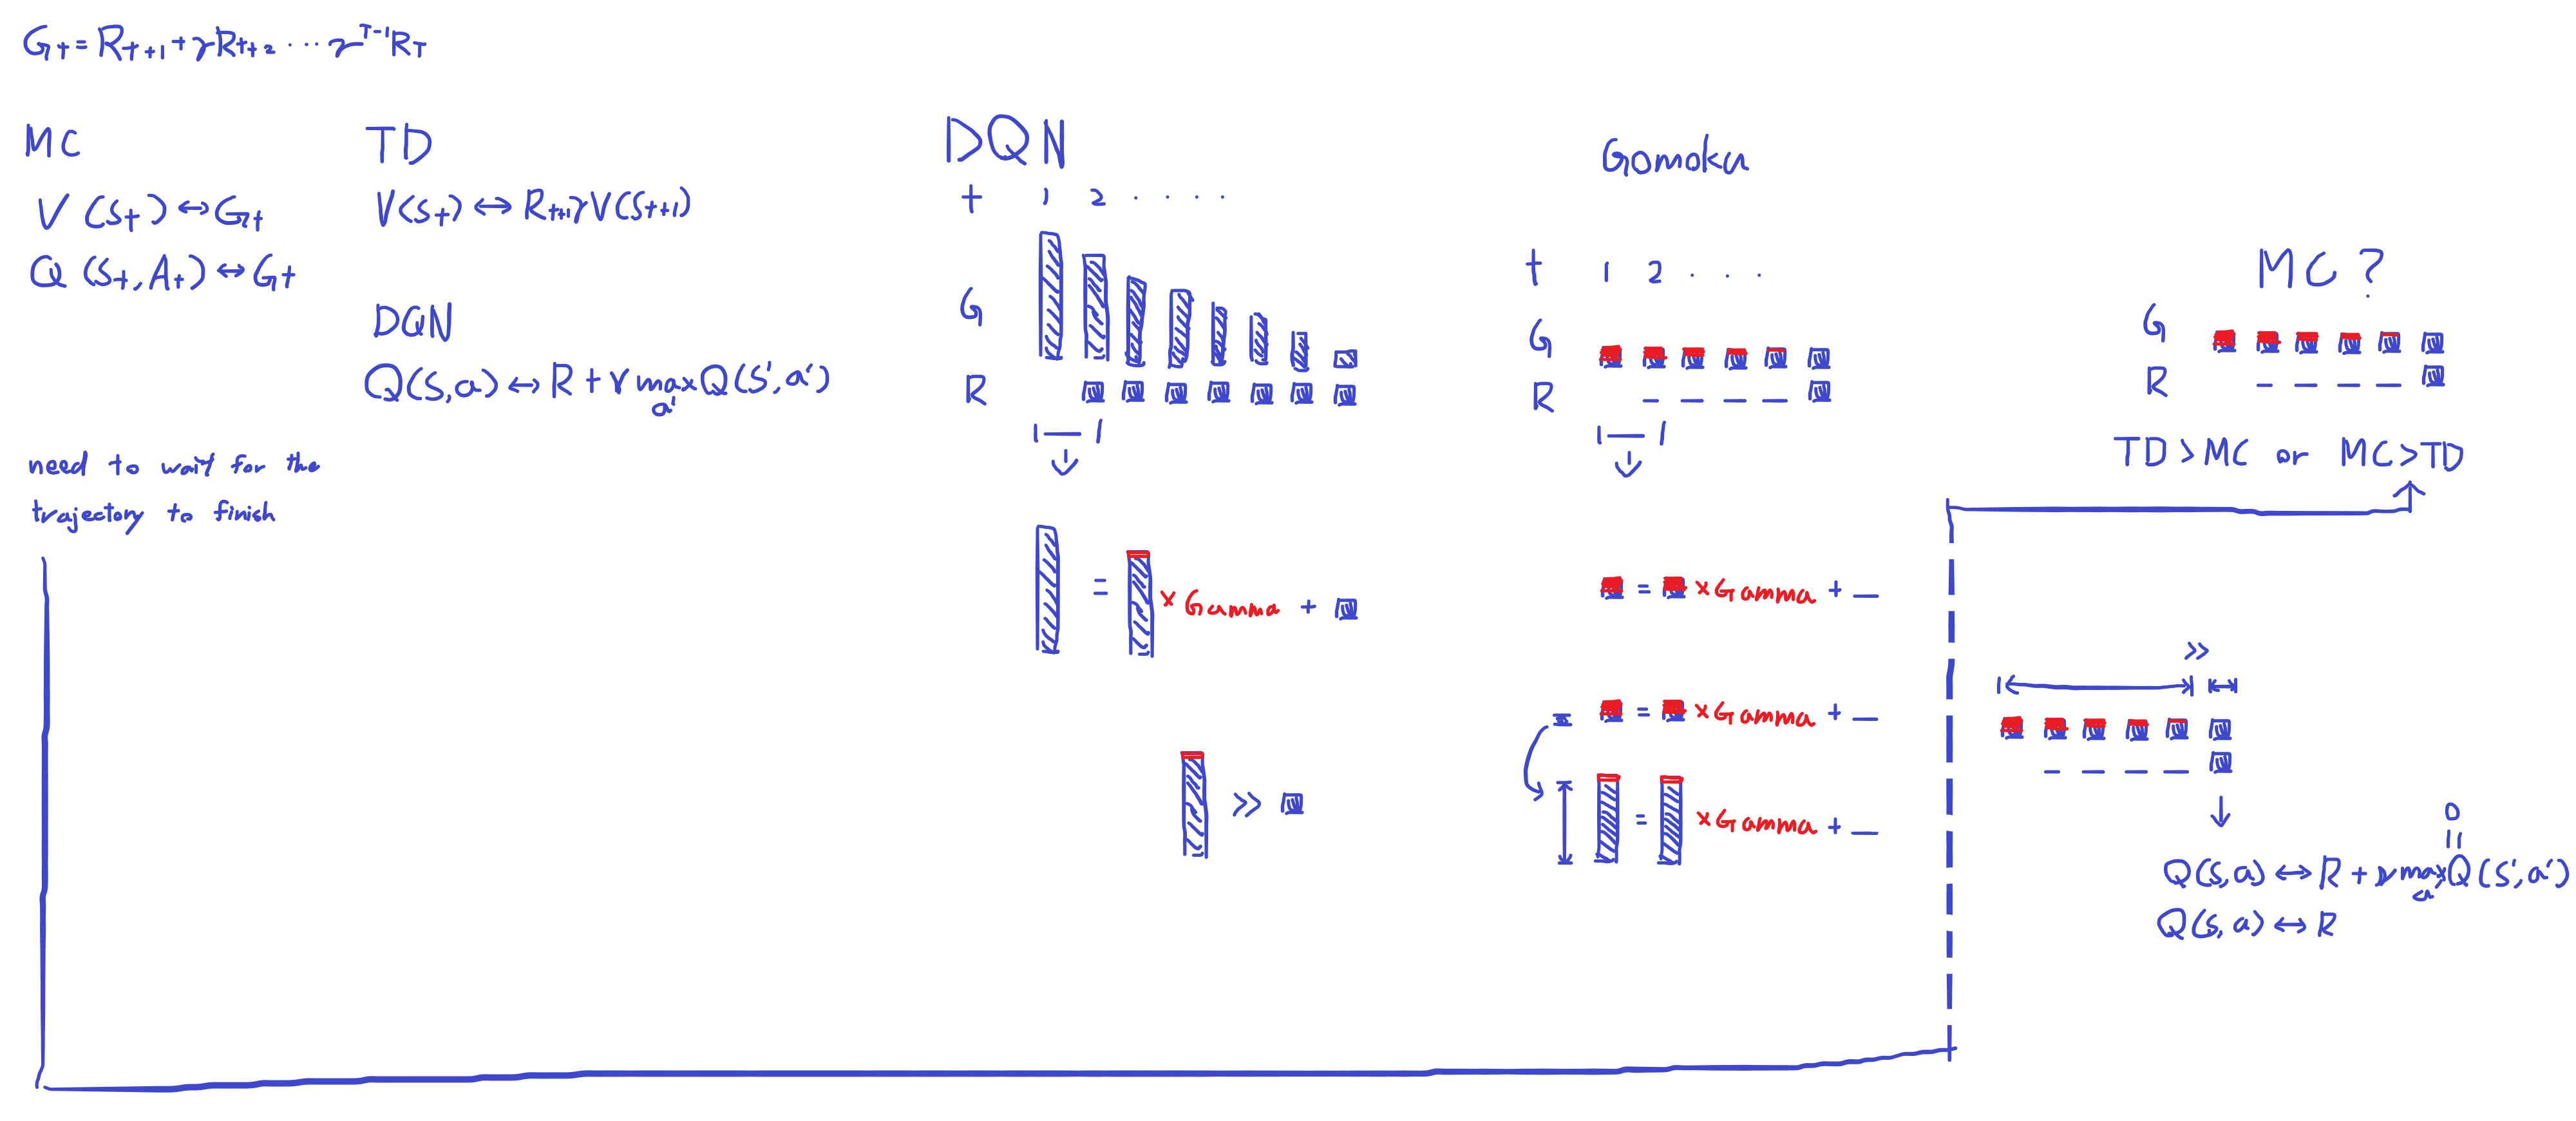 G_t = R_{t+1} + γR_{t+2} ···· γ^{T-1} R_T
MC
V (S_t) ↔ G_t
Q (S_t, A_t) ↔ G_t
need to wait for the
trajectory to finish
TD
V(S_t) ↔ R_{t+1} γV(S_{t+1})
DQN
Q(S,a) ↔ R + γ max_{a'} Q(S', a')
DQN
t 1 2 · · · ·
G
R
= × Gamma +
>>
Gomoka
t 1 2 · · ·
G
R
= × Gamma +
= × Gamma +
= × Gamma +
MC ?
G
R
TD > MC or MC > TD
>>
0
=
Q(S,a) ↔ R + γ max_{a'} Q(S', a')
Q(S,a) ↔ R